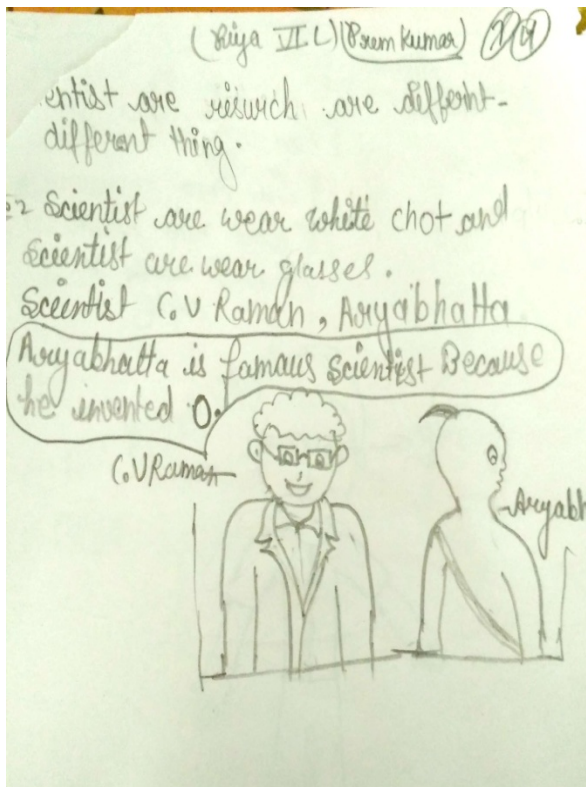 (Riya VI L) (Prem Kumar)
entist are resurch are differnt-
different thing.
Scientist are wear white chot and
Scientist are wear glasses.
Sceintist C.V Raman, Aryabhatta
Aryabhatta is famaus scientist Because
he invented 0.
C.V Raman
Aryabh